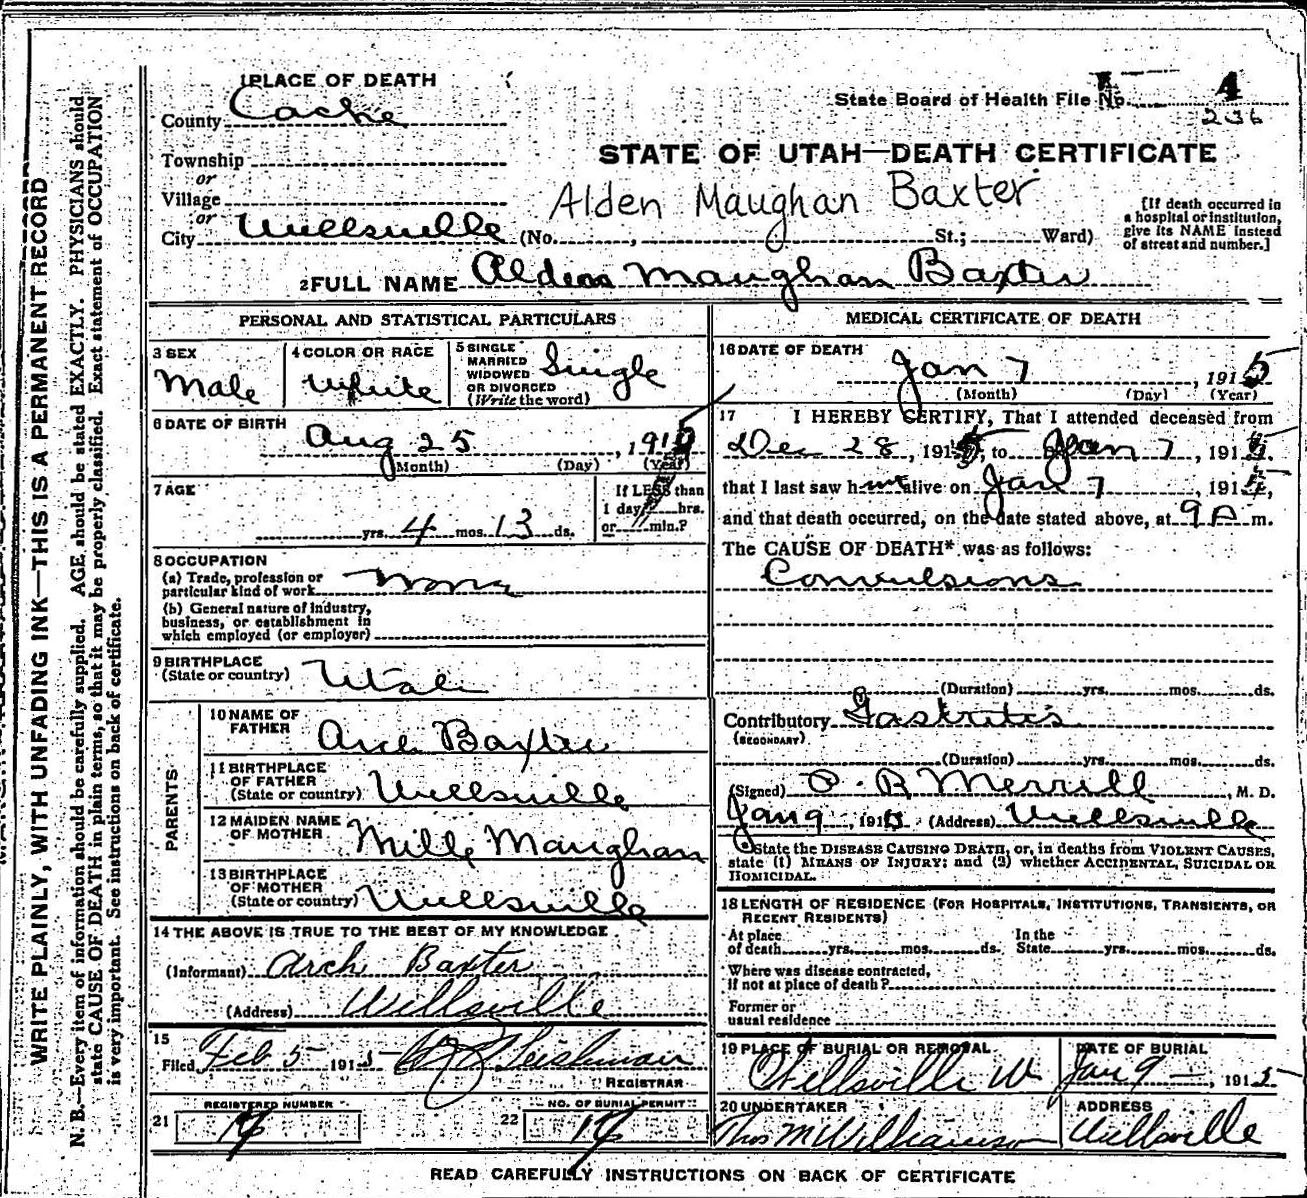 1 PLACE OF DEATH
County Cache
State Board of Health File No. 4
236
STATE OF UTAH—DEATH CERTIFICATE
Township
or
Village
Alden Maughan Baxter
or
City Wellsville (No. , St.; Ward)
[If death occurred in
a hospital or institution,
give its NAME instead
of street and number.]
2 FULL NAME Alden Maughan Baxter
PERSONAL AND STATISTICAL PARTICULARS
3 SEX
Male
4 COLOR OR RACE
White
5 SINGLE
MARRIED
WIDOWED
OR DIVORCED
(Write the word)
Single
6 DATE OF BIRTH
Aug 25 , 191
(Month) (Day) (Year)
7 AGE
yrs. 4 mos. 13 ds.
If LESS than
1 day, hrs.
or min.?
8 OCCUPATION
(a) Trade, profession or
particular kind of work
None
(b) General nature of industry,
business, or establishment in
which employed (or employer)
9 BIRTHPLACE
(State or country) Utah
PARENTS
10 NAME OF
FATHER Arch Baxter
11 BIRTHPLACE
OF FATHER
(State or country) Wellsville
12 MAIDEN NAME
OF MOTHER Mille Maughan
13 BIRTHPLACE
OF MOTHER
(State or country) Wellsville
14 THE ABOVE IS TRUE TO THE BEST OF MY KNOWLEDGE
(Informant) Arch Baxter
(Address) Wellsville
15
Filed Feb 5 1915 Leishman
REGISTRAR
REGISTERED NUMBER
21
NO. OF BURIAL PERMIT
22
MEDICAL CERTIFICATE OF DEATH
16 DATE OF DEATH
Jan 7 , 1915
(Month) (Day) (Year)
17 I HEREBY CERTIFY, That I attended deceased from
Dec 28 , 191 , to Jan 7 , 191
that I last saw him alive on Jan 7 , 191 ,
and that death occurred, on the date stated above, at 9 A m.
The CAUSE OF DEATH* was as follows:
Convulsions
(Duration) yrs. mos. ds.
Contributory Gastritis
(SECONDARY)
(Duration) yrs. mos. ds.
(Signed) P. R Merrill , M. D.
Jan 9 , 1915 (Address) Wellsville
*State the DISEASE CAUSING DEATH, or, in deaths from VIOLENT CAUSES,
state (1) MEANS OF INJURY; and (2) whether ACCIDENTAL, SUICIDAL OR
HOMICIDAL.
18 LENGTH OF RESIDENCE (FOR HOSPITALS, INSTITUTIONS, TRANSIENTS, OR
RECENT RESIDENTS)
At place
of death yrs. mos. ds.
In the
State yrs. mos. ds.
Where was disease contracted,
if not at place of death?
Former or
usual residence
19 PLACE OF BURIAL OR REMOVAL
Wellsville
DATE OF BURIAL
Jan 9 , 1915
20 UNDERTAKER
Thos M Williamson
ADDRESS
Wellsville
READ CAREFULLY INSTRUCTIONS ON BACK OF CERTIFICATE
WRITE PLAINLY, WITH UNFADING INK—THIS IS A PERMANENT RECORD
N. B.—Every item of information should be carefully supplied. AGE should be stated EXACTLY. PHYSICIANS should
state CAUSE OF DEATH in plain terms, so that it may be properly classified. Exact statement of OCCUPATION
is very important. See instructions on back of certificate.